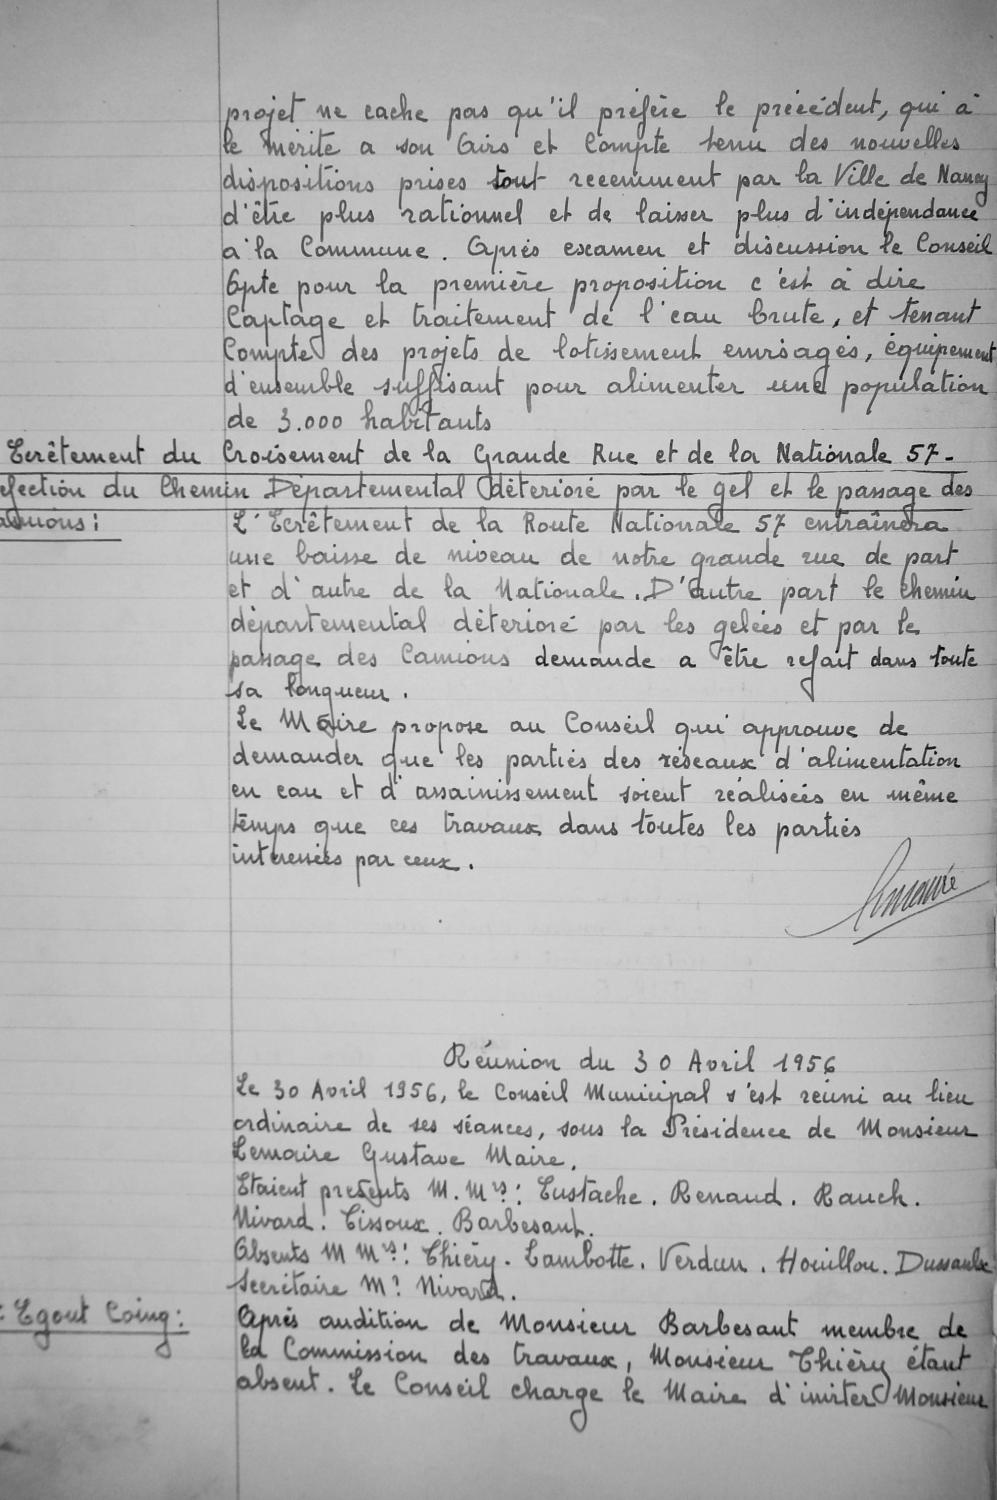 projet ne cache pas qu'il préfère le précédent, qui à
le mérite a son Avis et Compte tenu des nouvelles
dispositions prises tout recemment par la Ville de Nancy
d'être plus rationnel et de laisser plus d'indépendance
à la Commune. Après examen et discussion le Conseil
Opte pour la première proposition c'est à dire
Captage et traitement de l'eau brute, et tenant
Compte des projets de lotissement envisagés, équipement
d'ensemble suffisant pour alimenter une population
de 3.000 habitants
Ecrêtement du Croisement de la Grande Rue et de la Nationale 57-
efection du Chemin Départemental déterioré par le gel et le passage des
amions:
L'Ecrêtement de la Route Nationale 57 entraînera
une baisse de niveau de notre grande rue de part
et d'autre de la Nationale. D'autre part le chemin
départemental déterioré par les gelées et par le
passage des Camions demande a être refait dans toute
sa longueur.
Le Maire propose au Conseil qui approuve de
demander que les parties des réseaux d'alimentation
en eau et d'assainissement soient réalisées en même
temps que ces travaux dans toutes les parties
interessées par ceux.
Lemaire
Réunion du 30 Avril 1956
Le 30 Avril 1956, le Conseil Municipal s'est réuni au lieu
ordinaire de ses séances, sous la Présidence de Monsieur
Lemaire Gustave Maire.
Etaient presents M. Mrs: Eustache. Renaud. Rauch.
Nivard. Tissoux. Barbesant.
Absents M Mrs: Thiéry. Lambotte. Verdun. Houillon. Dussaulx
Secrétaire Mr Nivard.
Egout Coing:
Après audition de Monsieur Barbesant membre de
la Commission des travaux, Monsieur Thiéry étant
absent. Le Conseil charge le Maire d'inviter Monsieur